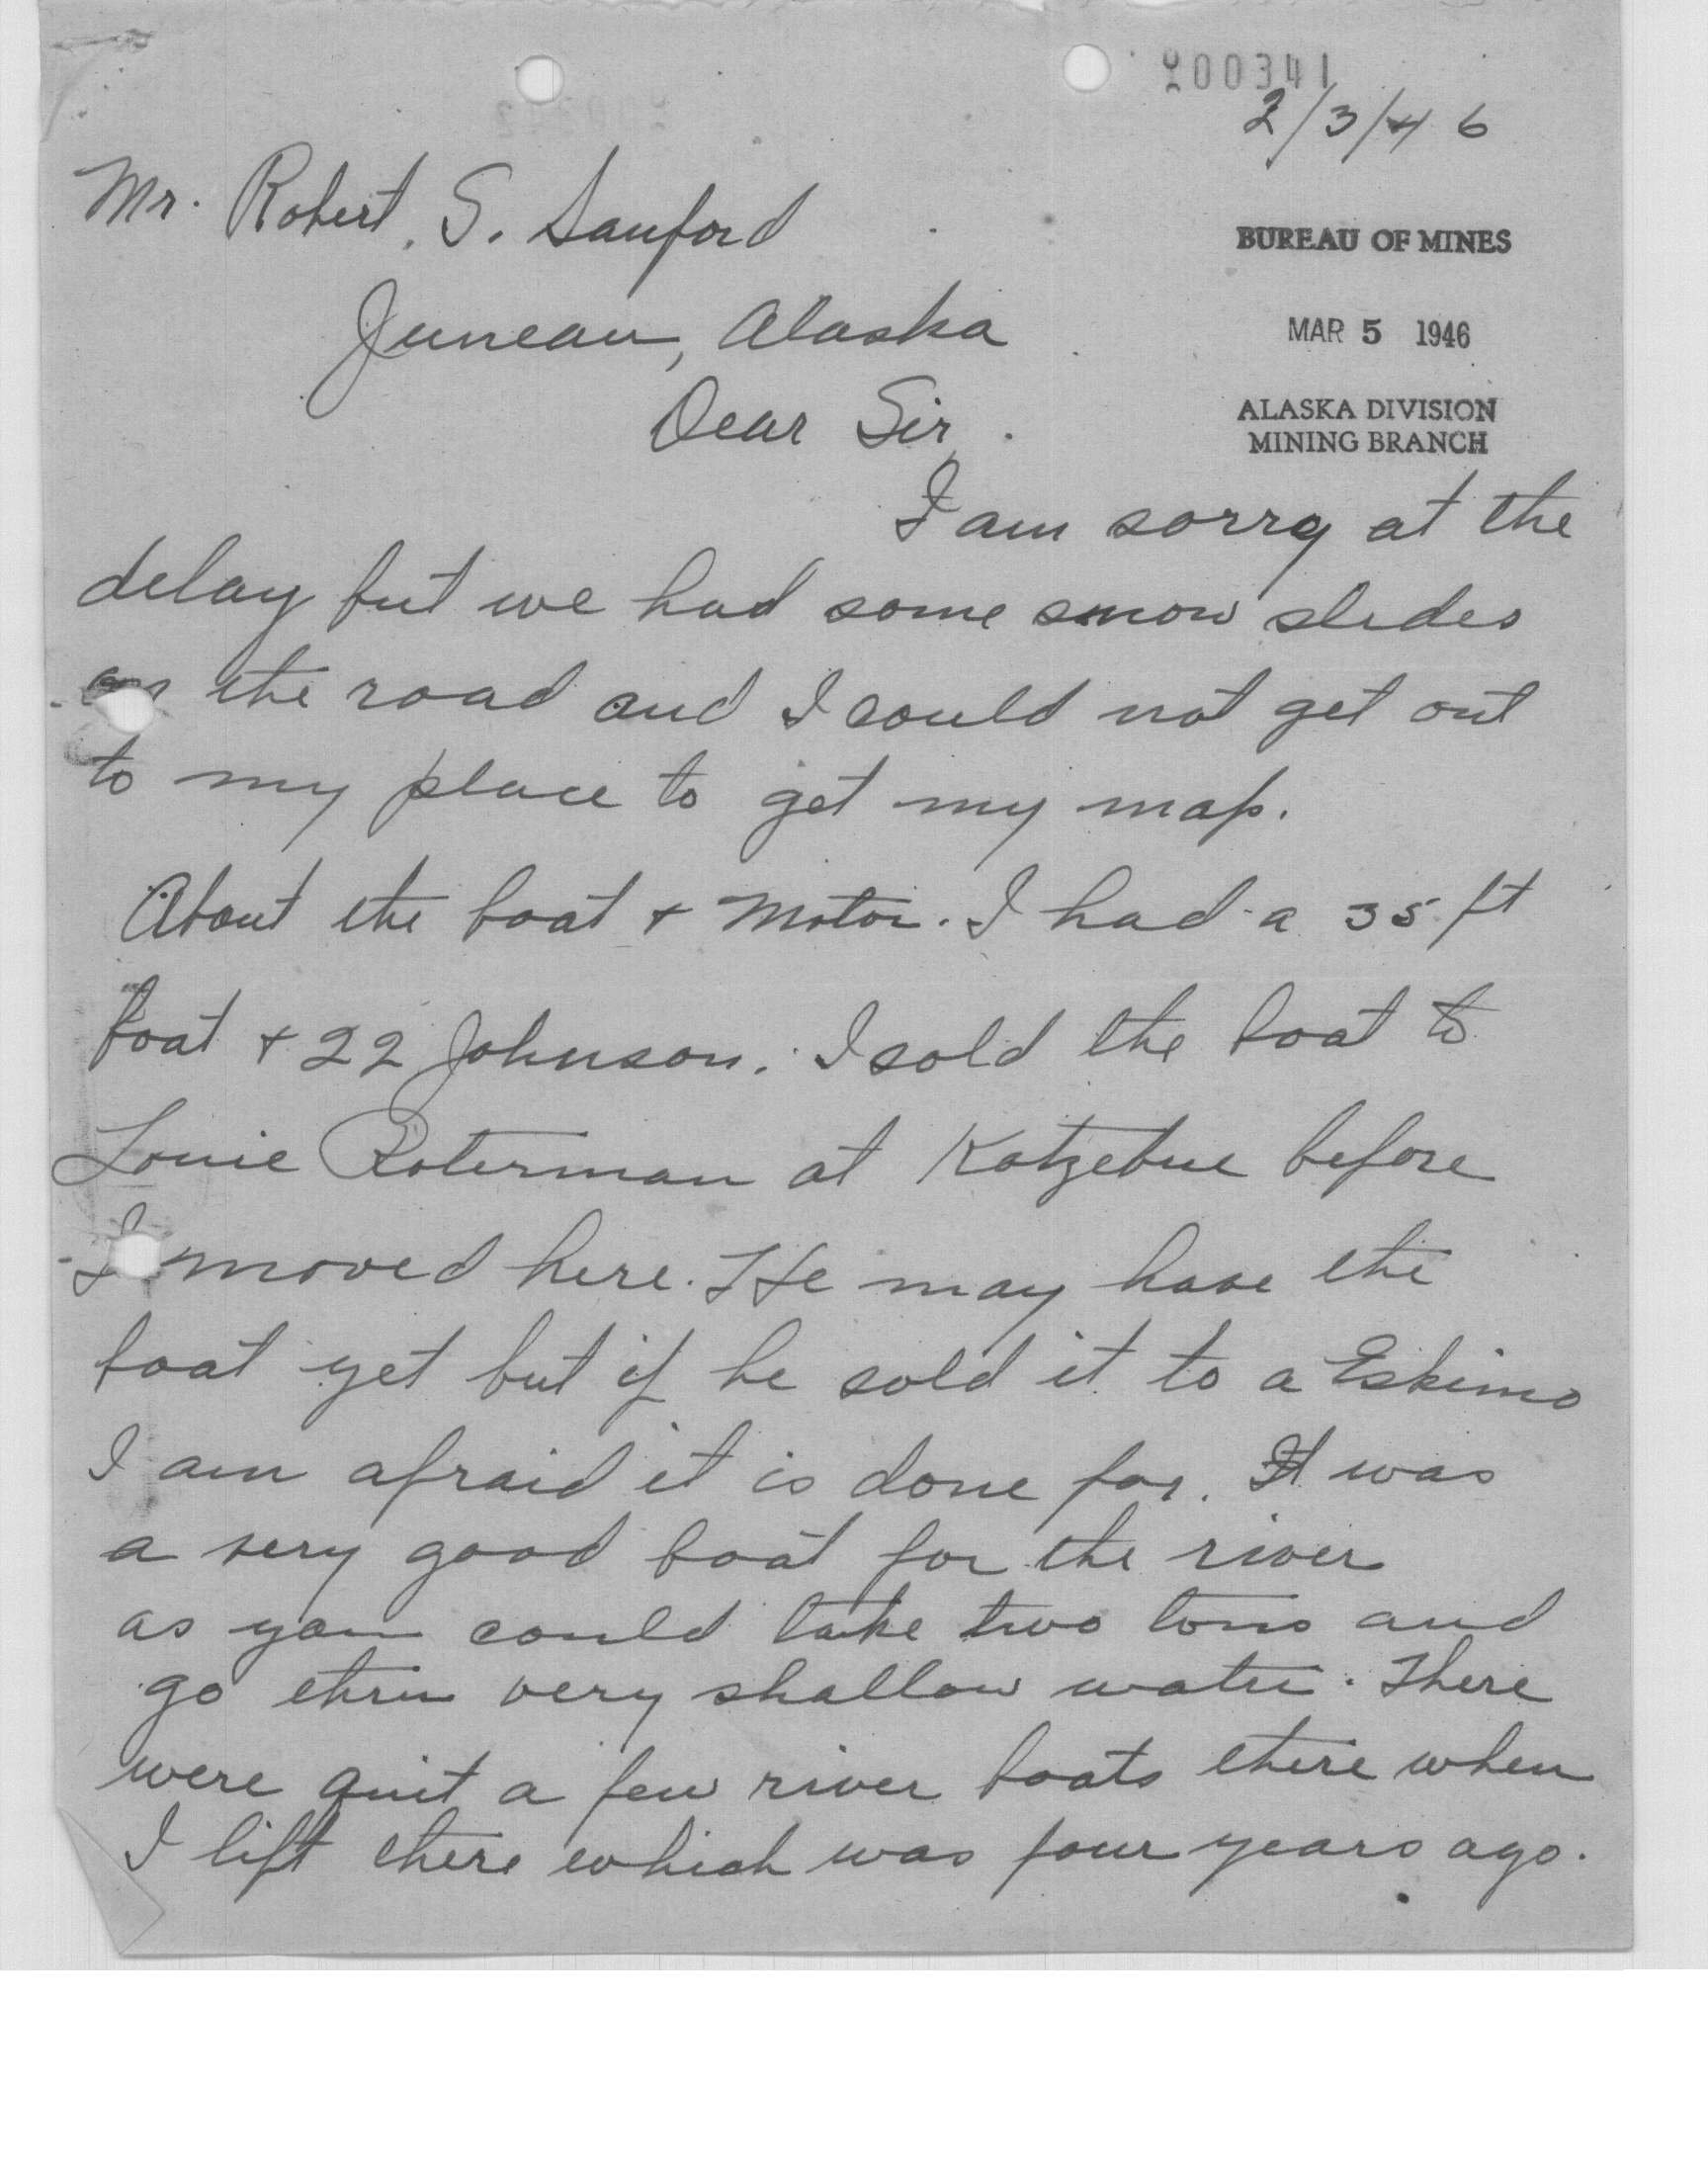 200341
2/3/46
Mr. Robert. S. Sanford
BUREAU OF MINES
Juneau, Alaska
MAR 5 1946
Dear Sir.
ALASKA DIVISION
MINING BRANCH
I am sorry at the
delay but we had some snow slides
on the road and I could not get out
to my place to get my map.
About the boat + Motor. I had a 35 ft
boat + 22 Johnson. I sold the boat to
Louie Roterman at Kotzebue before
I moved here. He may have the
boat yet but if he sold it to a Eskimo
I am afraid it is done for. It was
a very good boat for the river
as you could take two tons and
go thru very shallow water. There
were quit a few river boats there when
I lift there which was four years ago.